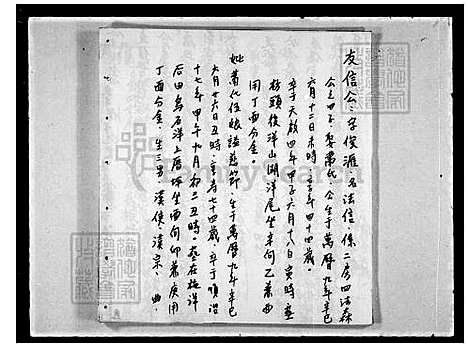 友信公：字俊涯名法信係二房四法森
公之四子娶葉氏公生于萬曆九年辛巳
六月十二日未時享年四十四歲
卒于天啟四年甲子六月十八日寅時葬
坊頭後洋山湖洋尾坐辛向乙兼
用丁酉分金。
妣葉氏位娘諡慈節生于萬曆九年辛巳
六月廿六日丑時享壽七十四歲卒于順治
十七年甲午十月初三丑時葬在梅洋
后田烏石洋上厝坪坐酉向卯兼庚用
丁酉分金生三男漢俊漢宗